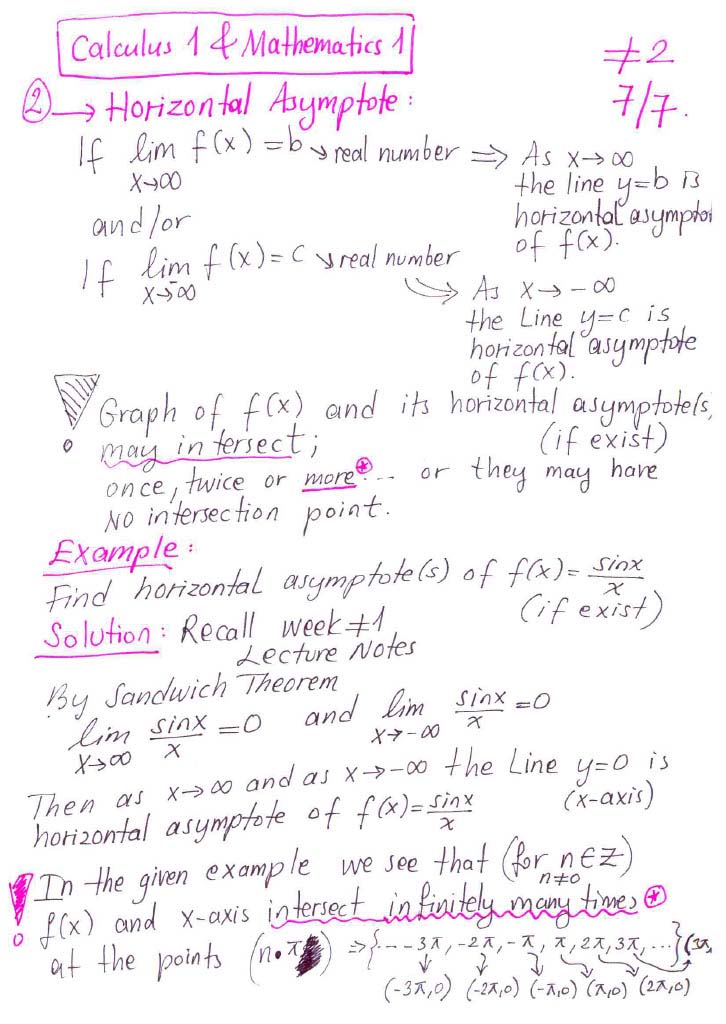 Calculus 1 & Mathematics 1
≠2
7/7.
② → Horizontal Asymptote:
If lim f(x) = b ↘ real number ⇒ As x→∞
x→∞
the line y=b is
horizontal asymptot
of f(x).
and/or
If lim f(x) = c ↘ real number
x→-∞
As x→-∞
the Line y=c is
horizontal asymptote
of f(x).
! Graph of f(x) and its horizontal asymptote(s)
may intersect; (if exist)
once, twice or more* ... or they may have
NO intersection point.
Example:
Find horizontal asymptote(s) of f(x) = sinx/x
(if exist)
Solution: Recall week ≠1
Lecture Notes
By Sandwich Theorem
lim sinx/x = 0 and lim sinx/x = 0
x→∞ x→-∞
Then as x→∞ and as x→-∞ the Line y=0 is
horizontal asymptote of f(x) = sinx/x (x-axis)
! In the given example we see that (for n∈Z)
n≠0
f(x) and x-axis intersect infinitely many times *
at the points (n•π) ⇒ {... -3π, -2π, -π, π, 2π, 3π, ...} (3π,
(-3π,0) (-2π,0) (-π,0) (π,0) (2π,0)